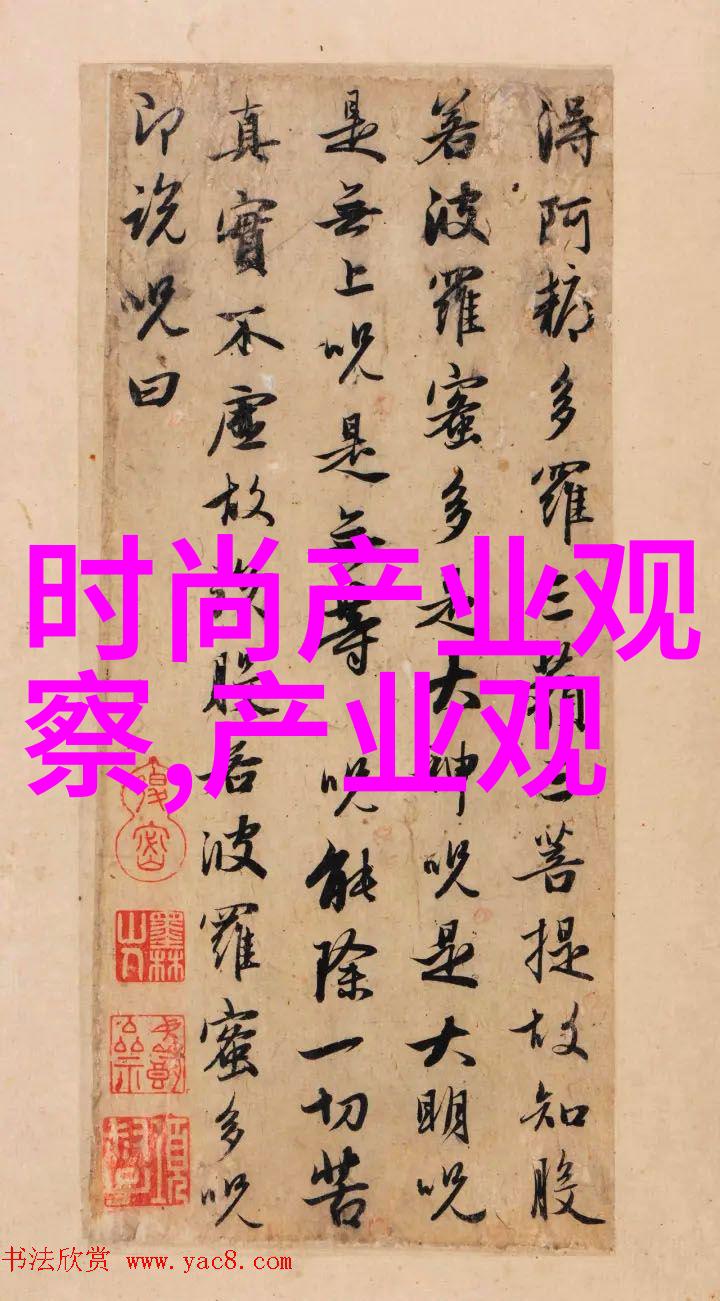 得阿耨多羅三藐三菩提故知般
若波羅蜜多是大神呪是大明呪
是無上呪是无等呪能除一切苦
真實不虛故說般若波羅蜜多呪
即說呪曰
时尚产业观
察,产业观
墨林山人
书法欣赏 www.yac8.com